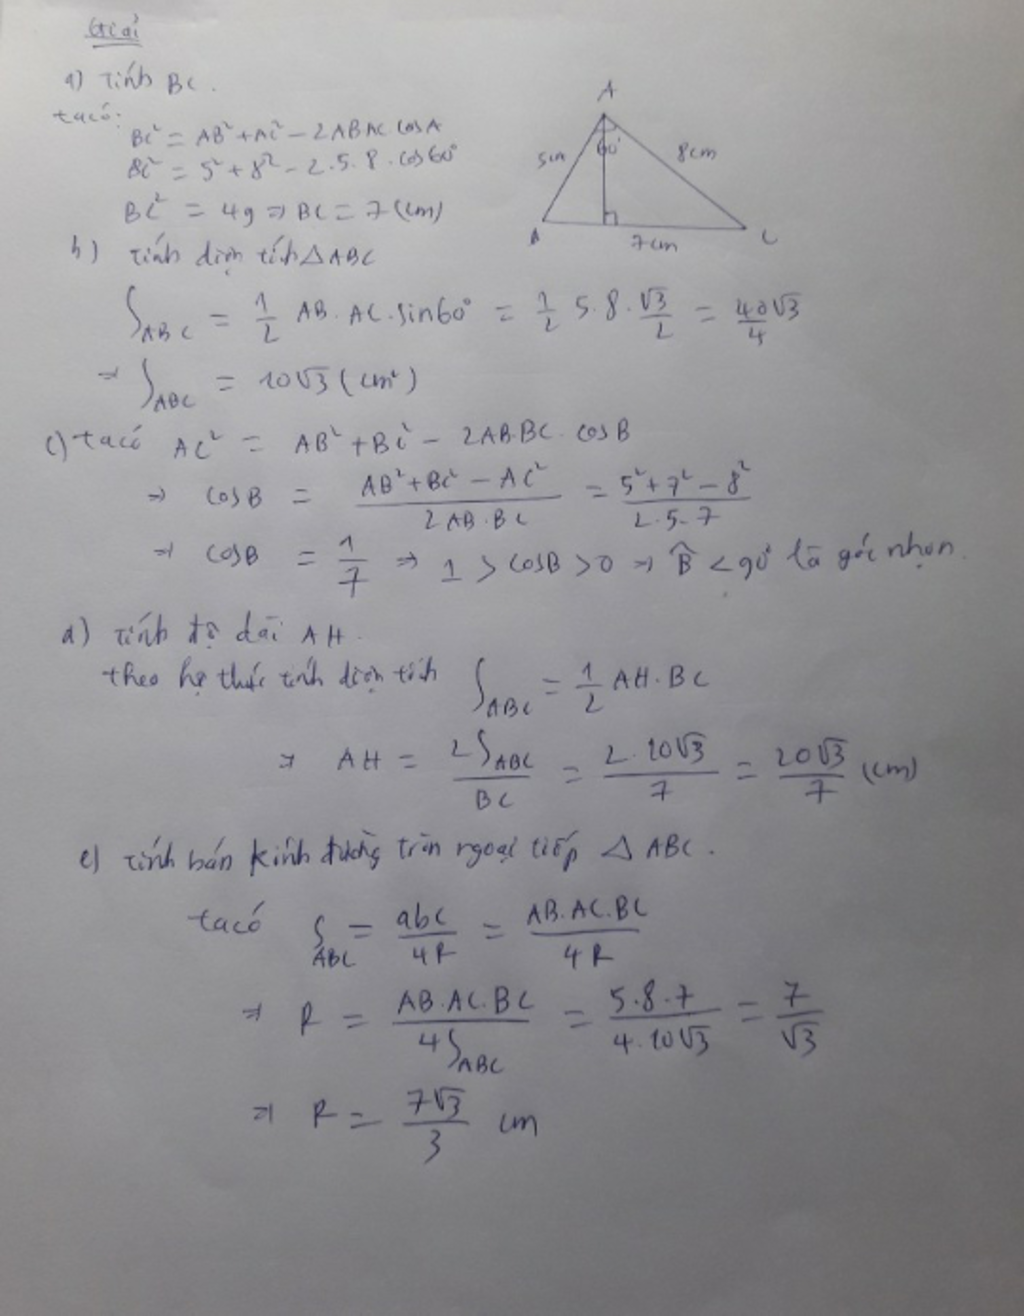 Giải
a) Tính BC.
ta có:
BC² = AB² + AC² - 2AB AC cosA
BC² = 5² + 8² - 2.5.8.cos60°
BC² = 49 ⇒ BC = 7 (cm)
A
60°
5cm
8cm
B
7cm
C
b) tính diện tích ΔABC
S_ABC = 1/2 AB.AC.sin60° = 1/2 5.8.√3/2 = 40√3/4
⇒ S_ABC = 10√3 (cm²)
c) ta có AC² = AB² + BC² - 2AB.BC.cosB
⇒ cosB = (AB² + BC² - AC²)/(2AB.BC) = (5² + 7² - 8²)/(2.5.7)
⇒ cosB = 1/7 ⇒ 1 > cosB > 0 ⇒ B̂ < 90° là góc nhọn.
d) tính độ dài AH.
theo hệ thức tính diện tích S_ABC = 1/2 AH.BC
⇒ AH = 2S_ABC/BC = 2.10√3/7 = 20√3/7 (cm)
e) tính bán kính đường tròn ngoại tiếp ΔABC.
ta có S_ABC = abc/4R = AB.AC.BC/4R
⇒ R = AB.AC.BC/4S_ABC = 5.8.7/4.10√3 = 7/√3
⇒ R = 7√3/3 cm